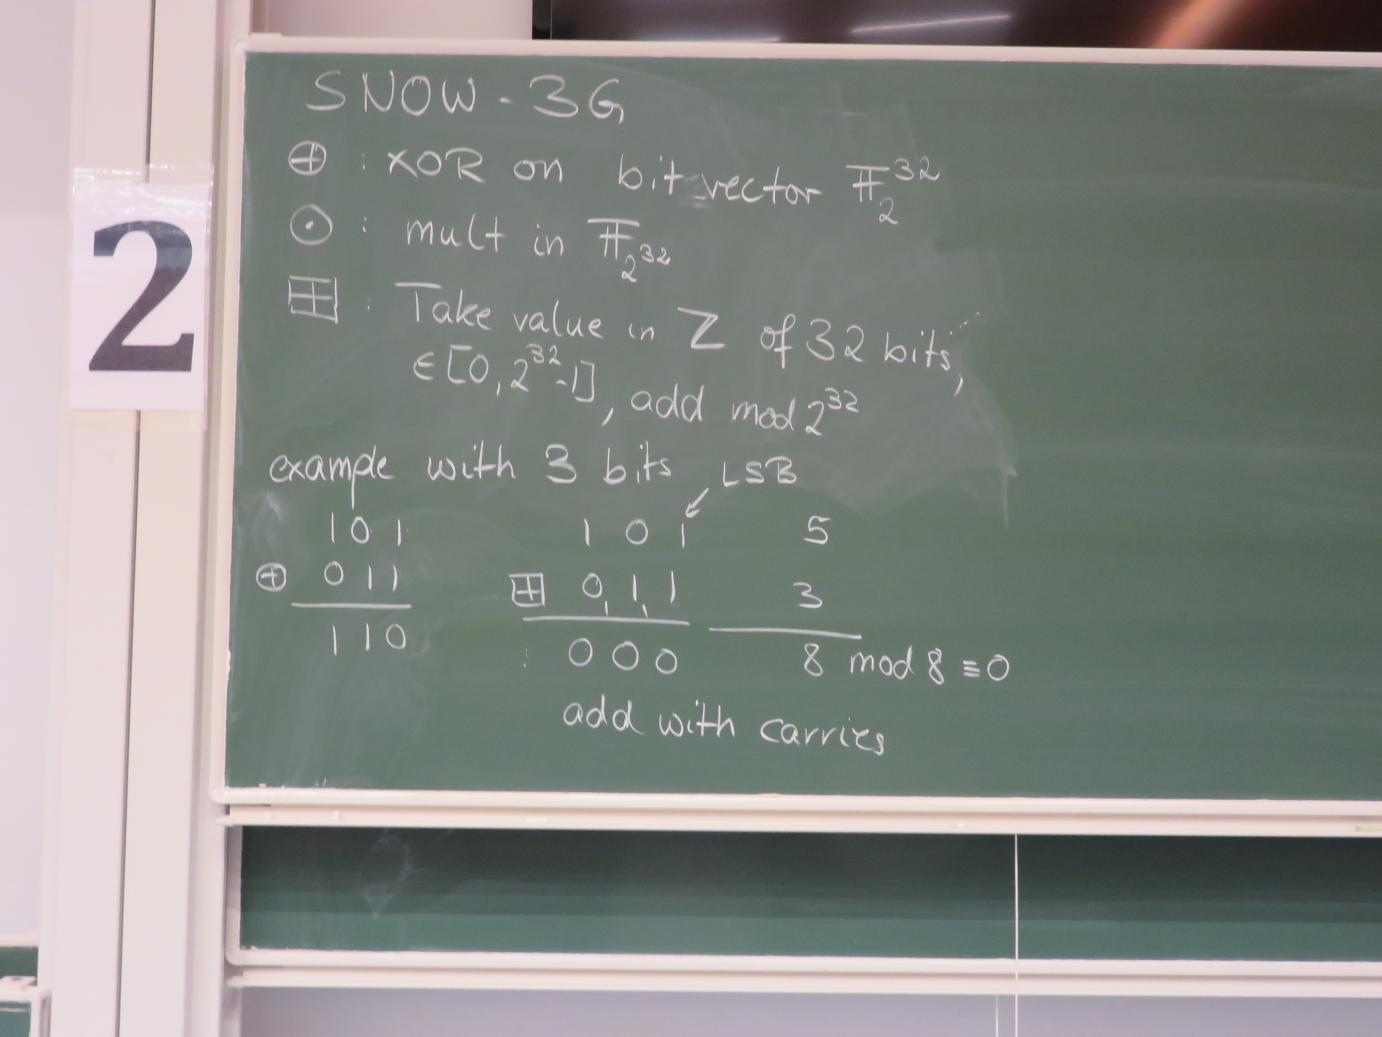 SNOW-3G
⊕ : XOR on bit vector 𝔽₂³²
2
⊙ : mult in 𝔽_2³²
⊞ : Take value in ℤ of 32 bits,
∈ [0, 2³²-1], add mod 2³²
example with 3 bits LSB
101 101 5
⊕ 011 ⊞ 011 3
110 000 8 mod 8 ≡ 0
add with carries